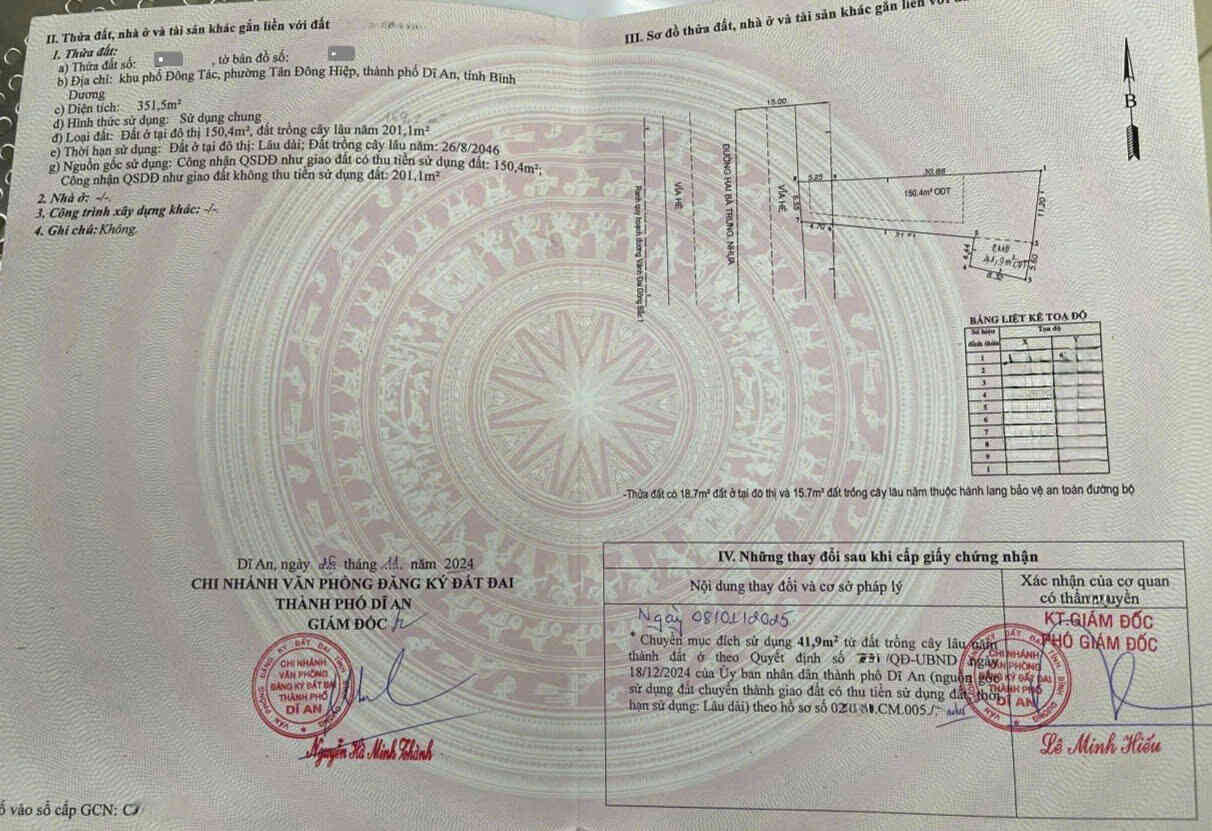 II. Thửa đất, nhà ở và tài sản khác gắn liền với đất
1. Thửa đất:
a) Thửa đất số: , tờ bản đồ số:
b) Địa chỉ: khu phố Đông Tác, phường Tân Đông Hiệp, thành phố Dĩ An, tỉnh Bình
Dương
c) Diện tích: 351,5m²
d) Hình thức sử dụng: Sử dụng chung
đ) Loại đất: Đất ở tại đô thị 150,4m², đất trồng cây lâu năm 201,1m²
e) Thời hạn sử dụng: Đất ở tại đô thị: Lâu dài; Đất trồng cây lâu năm: 26/8/2046
g) Nguồn gốc sử dụng: Công nhận QSDĐ như giao đất có thu tiền sử dụng đất: 150,4m²;
Công nhận QSDĐ như giao đất không thu tiền sử dụng đất: 201,1m²
2. Nhà ở: -/-.
3. Công trình xây dựng khác: -/-.
4. Ghi chú: Không.
Dĩ An, ngày tháng 11 năm 2024
CHI NHÁNH VĂN PHÒNG ĐĂNG KÝ ĐẤT ĐAI
THÀNH PHỐ DĨ AN
GIÁM ĐỐC
CHI NHÁNH
VĂN PHÒNG
ĐĂNG KÝ ĐẤT ĐAI
THÀNH PHỐ
DĨ AN
Nguyễn Hà Minh Thành
vào sổ cấp GCN:
III. Sơ đồ thửa đất, nhà ở và tài sản khác gắn liền với
B
15.00
Ranh quy hoạch đường Vành Đai Đông Bắc 1
VỈA HÈ
ĐƯỜNG HAI BÀ TRƯNG, NHỰA
VỈA HÈ
5.25
30.88
150.4m² ODT
11.20
4.70
5.60
BẢNG LIỆT KÊ TỌA ĐỘ
Số hiệu
đỉnh thửa
Tọa độ
X Y
1
2
3
4
5
6
7
8
9
1
-Thửa đất có 18.7m² đất ở tại đô thị và 15.7m² đất trồng cây lâu năm thuộc hành lang bảo vệ an toàn đường bộ
IV. Những thay đổi sau khi cấp giấy chứng nhận
Nội dung thay đổi và cơ sở pháp lý
Xác nhận của cơ quan
có thẩm quyền
Ngày 08/01/2025
* Chuyển mục đích sử dụng 41,9m² từ đất trồng cây lâu năm
thành đất ở theo Quyết định số /QĐ-UBND ngày
18/12/2024 của Ủy ban nhân dân thành phố Dĩ An (nguồn gốc
sử dụng đất chuyển thành giao đất có thu tiền sử dụng đất, thời
hạn sử dụng: Lâu dài) theo hồ sơ số .CM.005./.
KT.GIÁM ĐỐC
PHÓ GIÁM ĐỐC
CHI NHÁNH
VĂN PHÒNG
ĐĂNG KÝ ĐẤT ĐAI
THÀNH PHỐ
DĨ AN
Lê Minh Hiếu